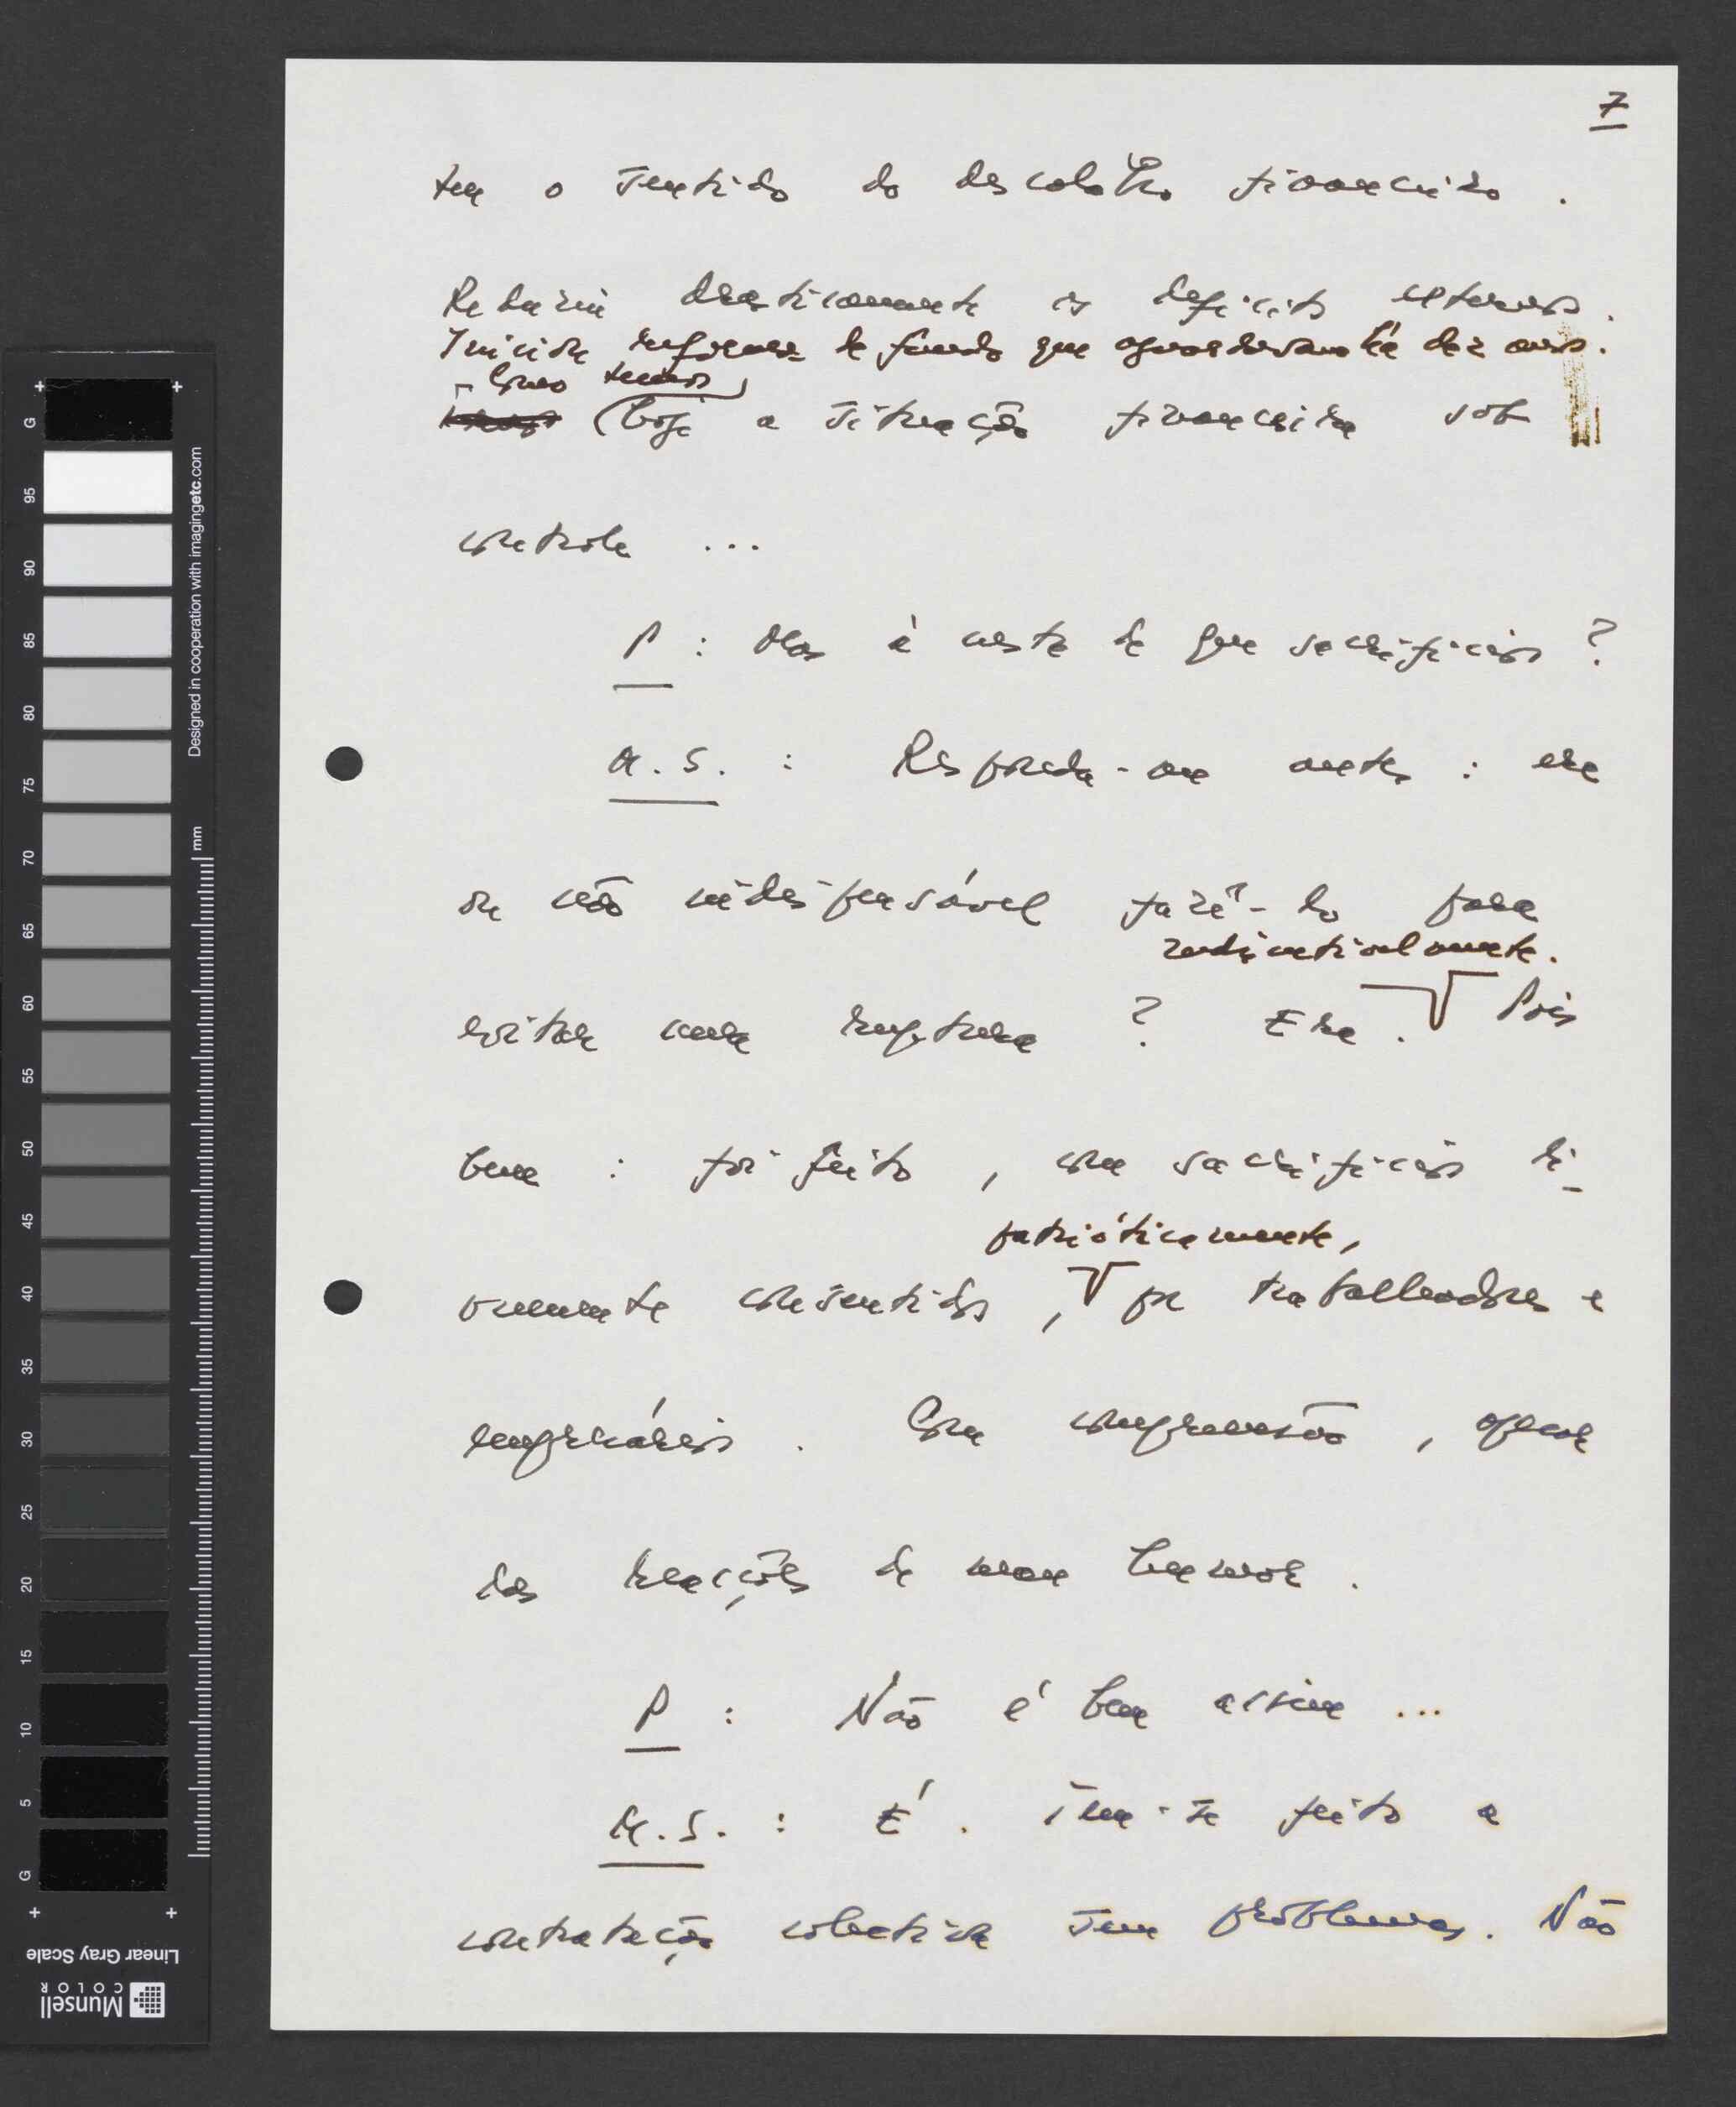 7
tem o sentido do descalabro financeiro.
Reduziu drasticamente os deficits externos.
Iniciou reformas de fundo que aguardavam há dez anos.
Como temos
hoje a situação financeira sob
controle ...
P : Mas à custa de que sacrifícios ?
M.S. : Responda-me antes : era
ou não indispensável fazê-lo para
indiscutivelmente.
evitar uma ruptura ? Era. Pois
bem : foi feito, com sacrifícios li-
patrióticamente,
vremente consentidos, por trabalhadores e
empresários. Com compreensão, apesar
das reacções de mau humor.
P : Não é bem assim ...
M.S. : É. Tem-se feito a
contratação colectiva sem problemas. Não
+ +
G 95 90 85 80 75 70 65 60 55 50 45 40 35 30 25 20 15 10 5 G
Designed in cooperation with imagingetc.com
mm
+ +
Linear Gray Scale
Munsell
COLOR